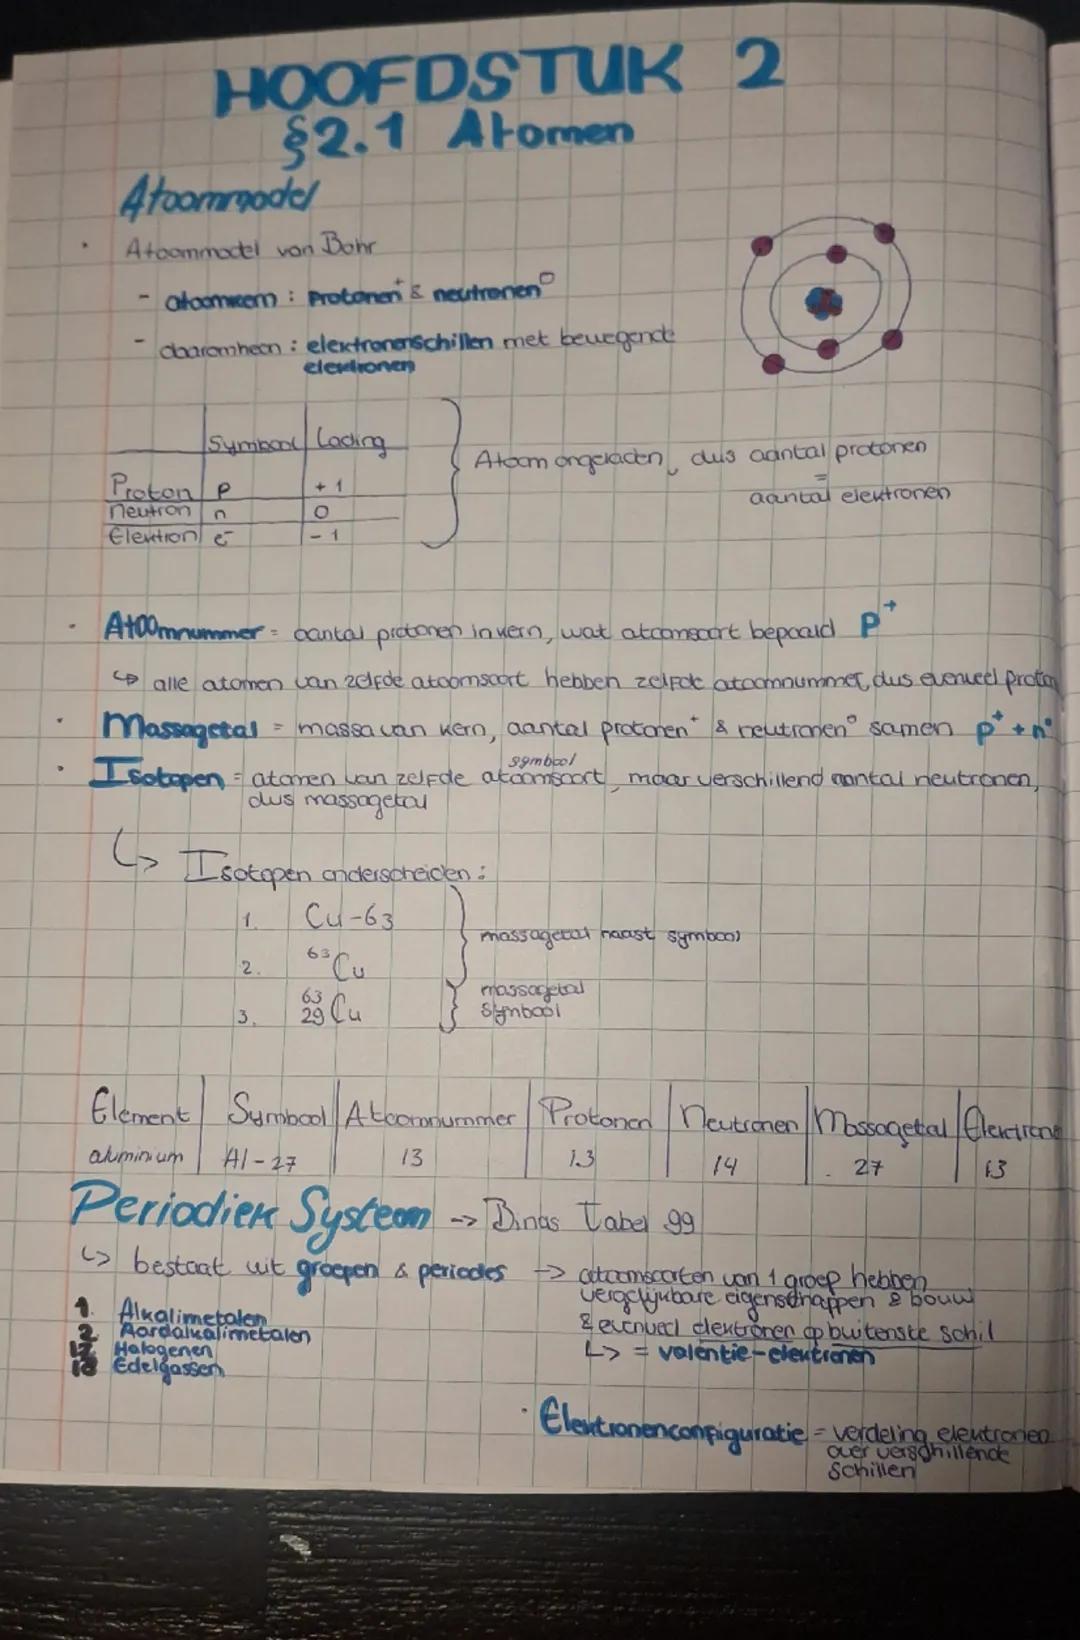 HOOFDSTUK 2
§2.1 Atomen
Atoommodel
• Atoommodel van Bohr
- atoomkern : protonen⁺ & neutronen⁰
- daaromheen : elektronenschillen met bewegende
elektronen
Symbool Lading
Proton p +1
neutron n 0
Elektron e⁻ -1
Atoom ongeladen, dus aantal protonen
=
aantal elektronen
• Atoomnummer = aantal protonen in kern, wat atoomsoort bepaald p⁺
↳ alle atomen van zelfde atoomsoort hebben zelfde atoomnummer, dus evenveel proton
• Massagetal = massa van kern, aantal protonen⁺ & neutronen⁰ samen p⁺ + n⁰
symbool
• Isotopen = atomen van zelfde atoomsoort, maar verschillend aantal neutronen,
dus massagetal
↳ Isotopen onderscheiden :
1. Cu-63
massagetal naast symbool
2. ⁶³Cu
massagetal
symbool
3. ⁶³₂₉Cu
Element Symbool Atoomnummer Protonen Neutronen Massagetal Elektrone
aluminium Al-27 13 13 14 27 13
Periodiek Systeem -> Binas Tabel 99
↳ bestaat uit groepen & periodes -> atoomsoorten van 1 groep hebben
vergelijkbare eigenschappen & bouw
& evenveel elektronen op buitenste schil
↳ = valentie-elektronen
1. Alkalimetalen
2 Aardalkalimetalen
17 Halogenen
18 Edelgassen
• Elektronenconfiguratie = verdeling elektronen
over verschillende
schillen